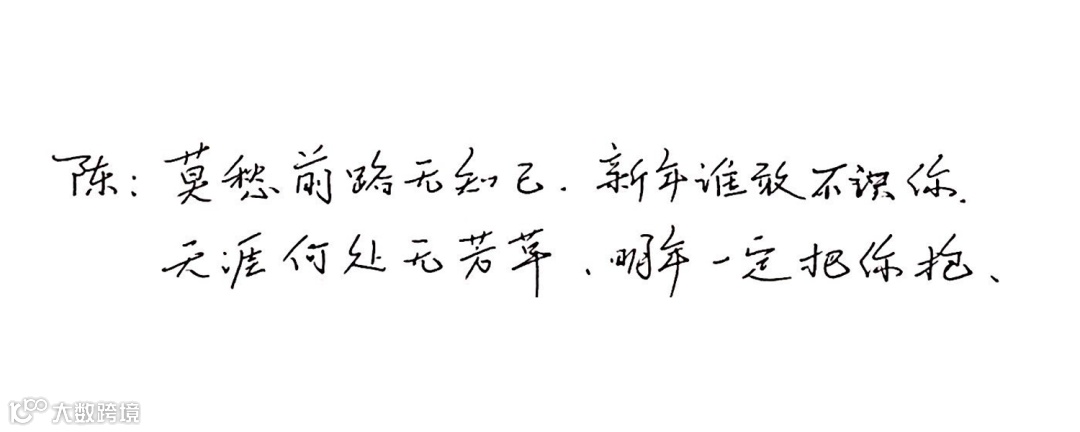 陈：莫愁前路无知己．新年谁敢不识你．
天涯何处无芳草、明年一定把你抢、
大数跨境